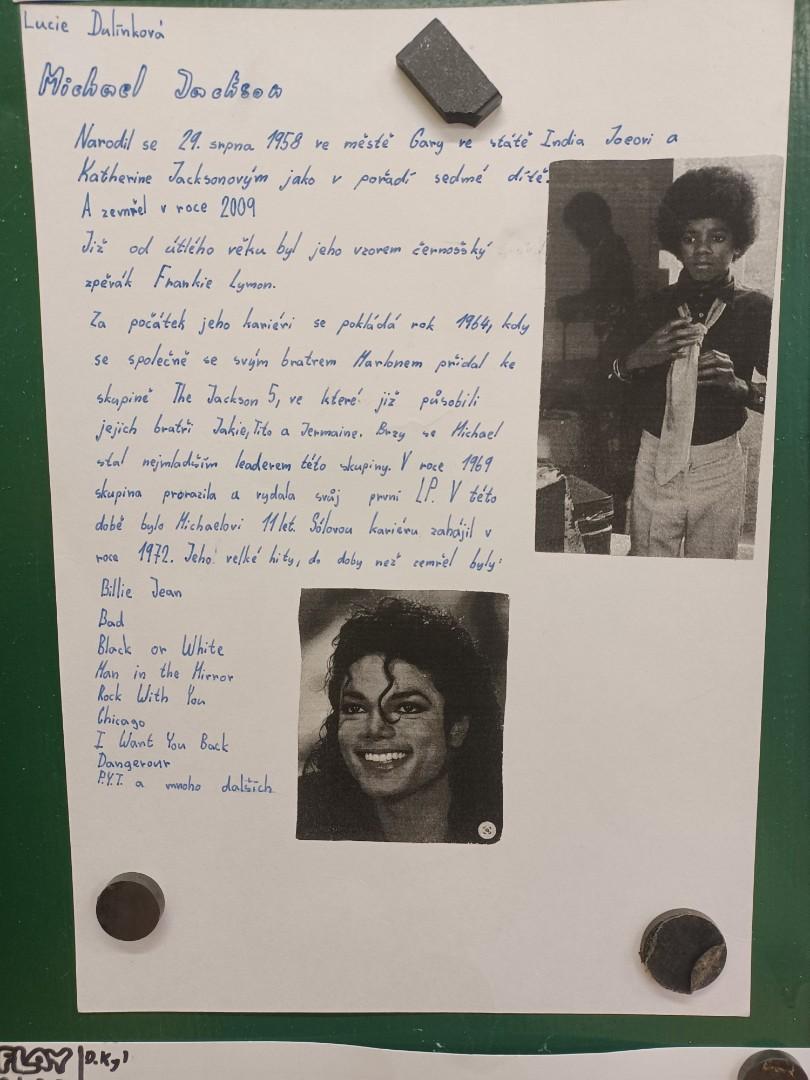 Lucie Dulínková
Michael Jackson
Narodil se 29. srpna 1958 ve městě Gary ve státě India Joeovi a
Katherine Jacksonovým jako v pořadí sedmé dítě.
A zemřel v roce 2009
Již od útlého věku byl jeho vzorem černošský
zpěvák Frankie Lymon.
Za počátek jeho kariéri se pokládá rok 1964, kdy
se společně se svým bratrem Marlonem přidal ke
skupině The Jackson 5, ve které již působili
jejich bratři Jakie, Tito a Jermaine. Brzy se Michael
stal nejmladším leaderem této skupiny. V roce 1969
skupina prorazila a vydala svůj první LP. V této
době bylo Michaelovi 11 let. Sólovou kariéru zahájil v
roce 1972. Jeho velké hity, do doby než zemřel byly:
Billie Jean
Bad
Black or White
Man in the Mirror
Rock With You
Chicago
I Want You Back
Dangerour
P.Y.T. a mnoho dalších
FLAY